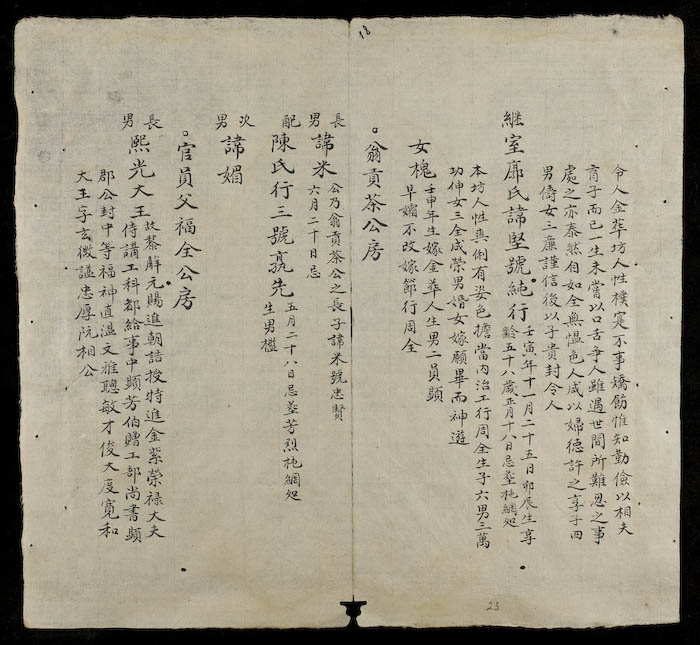 18
令人金葬坊人性樸寔不事矯飭惟知勤儉以相夫
育子而已一生未嘗以口舌争人雖遇世間所難忍之事
處之亦泰然自如全無慍色人咸以婦德許之享子四
男倚女三廉謹信後以子貴封令人
継室廖氏諱堅號純行 壬寅年十一月二十五日卯辰生享
齡五十八歲正月十八日忌墓柂綱処
本坊人性與俐有姿色擔當内治工行周全生子六男三萬
功伸女三全成榮男婚女嫁願畢而神遊
女槐 壬申年生嫁金葬人生男二員顕
早孀不改嫁節行周全
。翁貢茶公房
長男 諱米 公乃翁貢茶公之長子諱米號忠賢
六月二十日忌
配 陳氏行三號 先 五月二十八日忌墓芳烈柂綱処
生男檻
次男 諱媚
。官員父福全公房
長男 熙光大王 故黎解元賜進朝誥授特進金紫榮禄大夫
侍講工科都給事中顕芳伯贈工部尚書顕
郡公封中等福神直溫文雅聰敏才俊大度寬和
大王字玄微謚忠厚阮相公
23